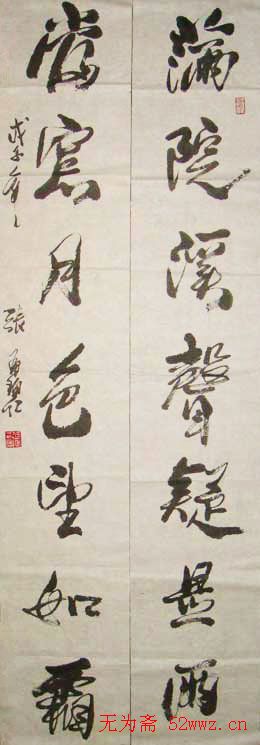 滿院溪聲疑是雨
當窓月色望如霜
戊子年
張
无为斋 52wwz.cn